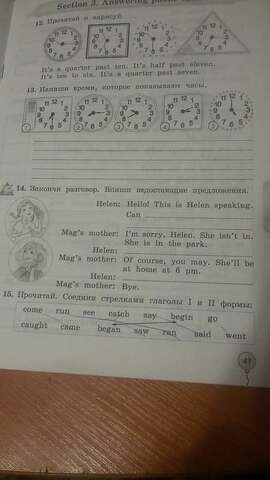 Section 3. Answering phone
12. Прочитай и нарисуй.
It's a quarter past ten. It's half past eleven.
It's ten to six. It's a quarter past seven.
13. Напиши время, которое показывают часы.
1 2 3 4 5
14. Закончи разговор. Впиши недостающие предложения.
Helen: Hello! This is Helen speaking.
Can
Mag's mother: I'm sorry, Helen. She isn't in.
She is in the park.
Helen:
Mag's mother: Of course, you may. She'll be
at home at 6 pm.
Helen:
Mag's mother: Bye.
15. Прочитай. Соедини стрелками глаголы I и II формы:
come run see catch say begin go
caught came began saw ran said went
47